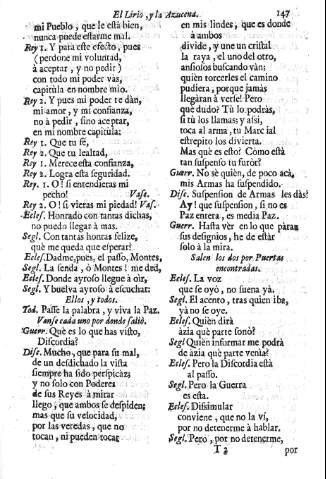 El Lirio, y la Azucena. 147
mi Pueblo, que le està bien,
nunca puede estarme mal.
Rey 1. Y para este efecto, pues
(perdone mi voluntad,
à aceptar, y no pedir)
con todo mi poder vàs,
capitùla en nombre mio.
Rey 2. Y pues mi poder te dàn,
mi amor, y mi confianza,
no à pedir, sino aceptar,
en mi nombre capitùla:
Rey 1. Que tu fè,
Rey 2. Que tu lealtad,
Rey 1. Merece esta confianza,
Rey 2. Logra esta seguridad.
Rey. 1. O! si entendieras mi
pecho! Vase.
Rey 2. O! si vieras mi piedad! Vase.
Eclef. Honrado con tantas dichas,
no puedo llegar à mas.
Segl. Con tantas honras felize,
què me queda que esperar?
Eclef. Dadme, pues, el passo, Montes,
Segl. La senda, ò Montes! me dad,
Eclef. Donde ayroso llegue à oìr,
Segl. Y buelva ayroso à escuchar:
Ellos, y todos.
Tod. Passe la palabra, y viva la Paz.
Vanse cada uno por donde saliò.
Guerr. Què es lo que has visto,
Discordia?
Disc. Mucho, que para su mal,
de un desdichado la vista
siempre ha sido perspicàz;
y no solo con Poderes
de sus Reyes à mirar
llego, que ambos se despiden;
mas que su velocidad,
por las veredas, que no
tocan, ni pueden tocar
en mis lindes, que es donde
à ambos
divide, y une un cristal
la raya, el uno del otro,
ansiosos buscando vàn:
quièn torcerles el camino
pudiera, porque jamàs
llegàran à verse! Pero
què dudo? Tù lo podràs,
si tù los llamas; y assi,
toca al arma, tu Marcial
estrepito los divierta.
Mas què es esto? Còmo està
tan suspenso tu furòr?
Guerr. No sè quièn, de poco acà,
mis Armas ha suspendido.
Disc. Suspension de Armas les dàs!
Ay! que suspension, si no es
Paz entera, es media Paz.
Guerr. Hasta vèr en lo que paràn
sus designios, he de estàr
solo à la mira.
Salen los dos por Puertas
encontradas.
Eclef. La voz
que se oyò, no suena yà.
Segl. El acento, tras quien iba,
yà no se oye.
Eclef. Quièn dirà
àzia què parte sonò?
Segl. Quièn informar me podrà
de àzia què parte venìa?
Eclef. Pero la Discordia està
al passo.
Segl. Pero la Guerra
es esta.
Eclef. Disimular
conviene, que no la vì,
por no detenerme à hablar.
Segl. Pero, por no detenerme,
T 2 por